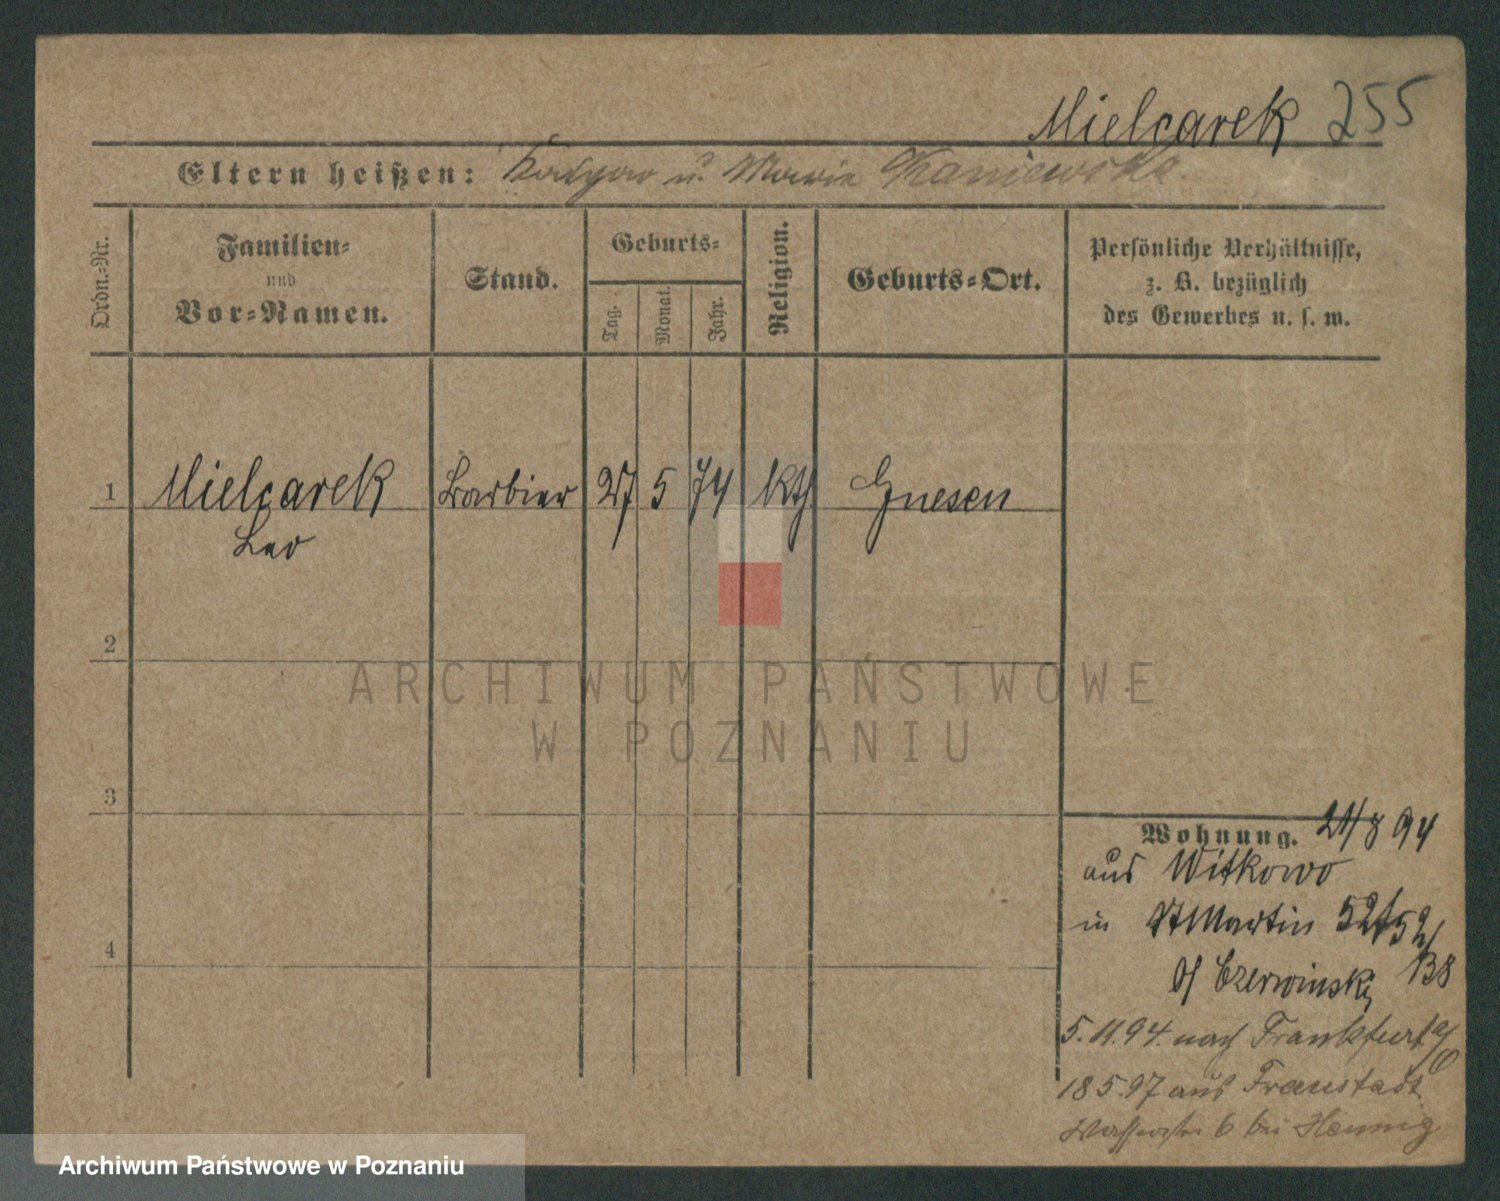 Mielcarek 255
Eltern heißen: Kaspar u. Marie Kaniewska.
Ordn.-Nr.
Familien-
und
Vor-Namen.
Stand.
Geburts-
Tag.
Monat.
Jahr.
Religion.
Geburts-Ort.
Persönliche Verhältnisse,
z. B. bezüglich
des Gewerbes u. s. w.
1 Mielcarek Barbier 27 5 74 kth. Gnesen
Leo
2
ARCHIWUM PAŃSTWOWE
W POZNANIU
3
Wohnung. 21/8 94
aus Witkowo
in St Martin
b/ Czerwinski
5.11.94. nach Frankfurt a/O
18 5.97 aus Fraustadt
Wasserstr. 6 bei Hennig
4
Archiwum Państwowe w Poznaniu